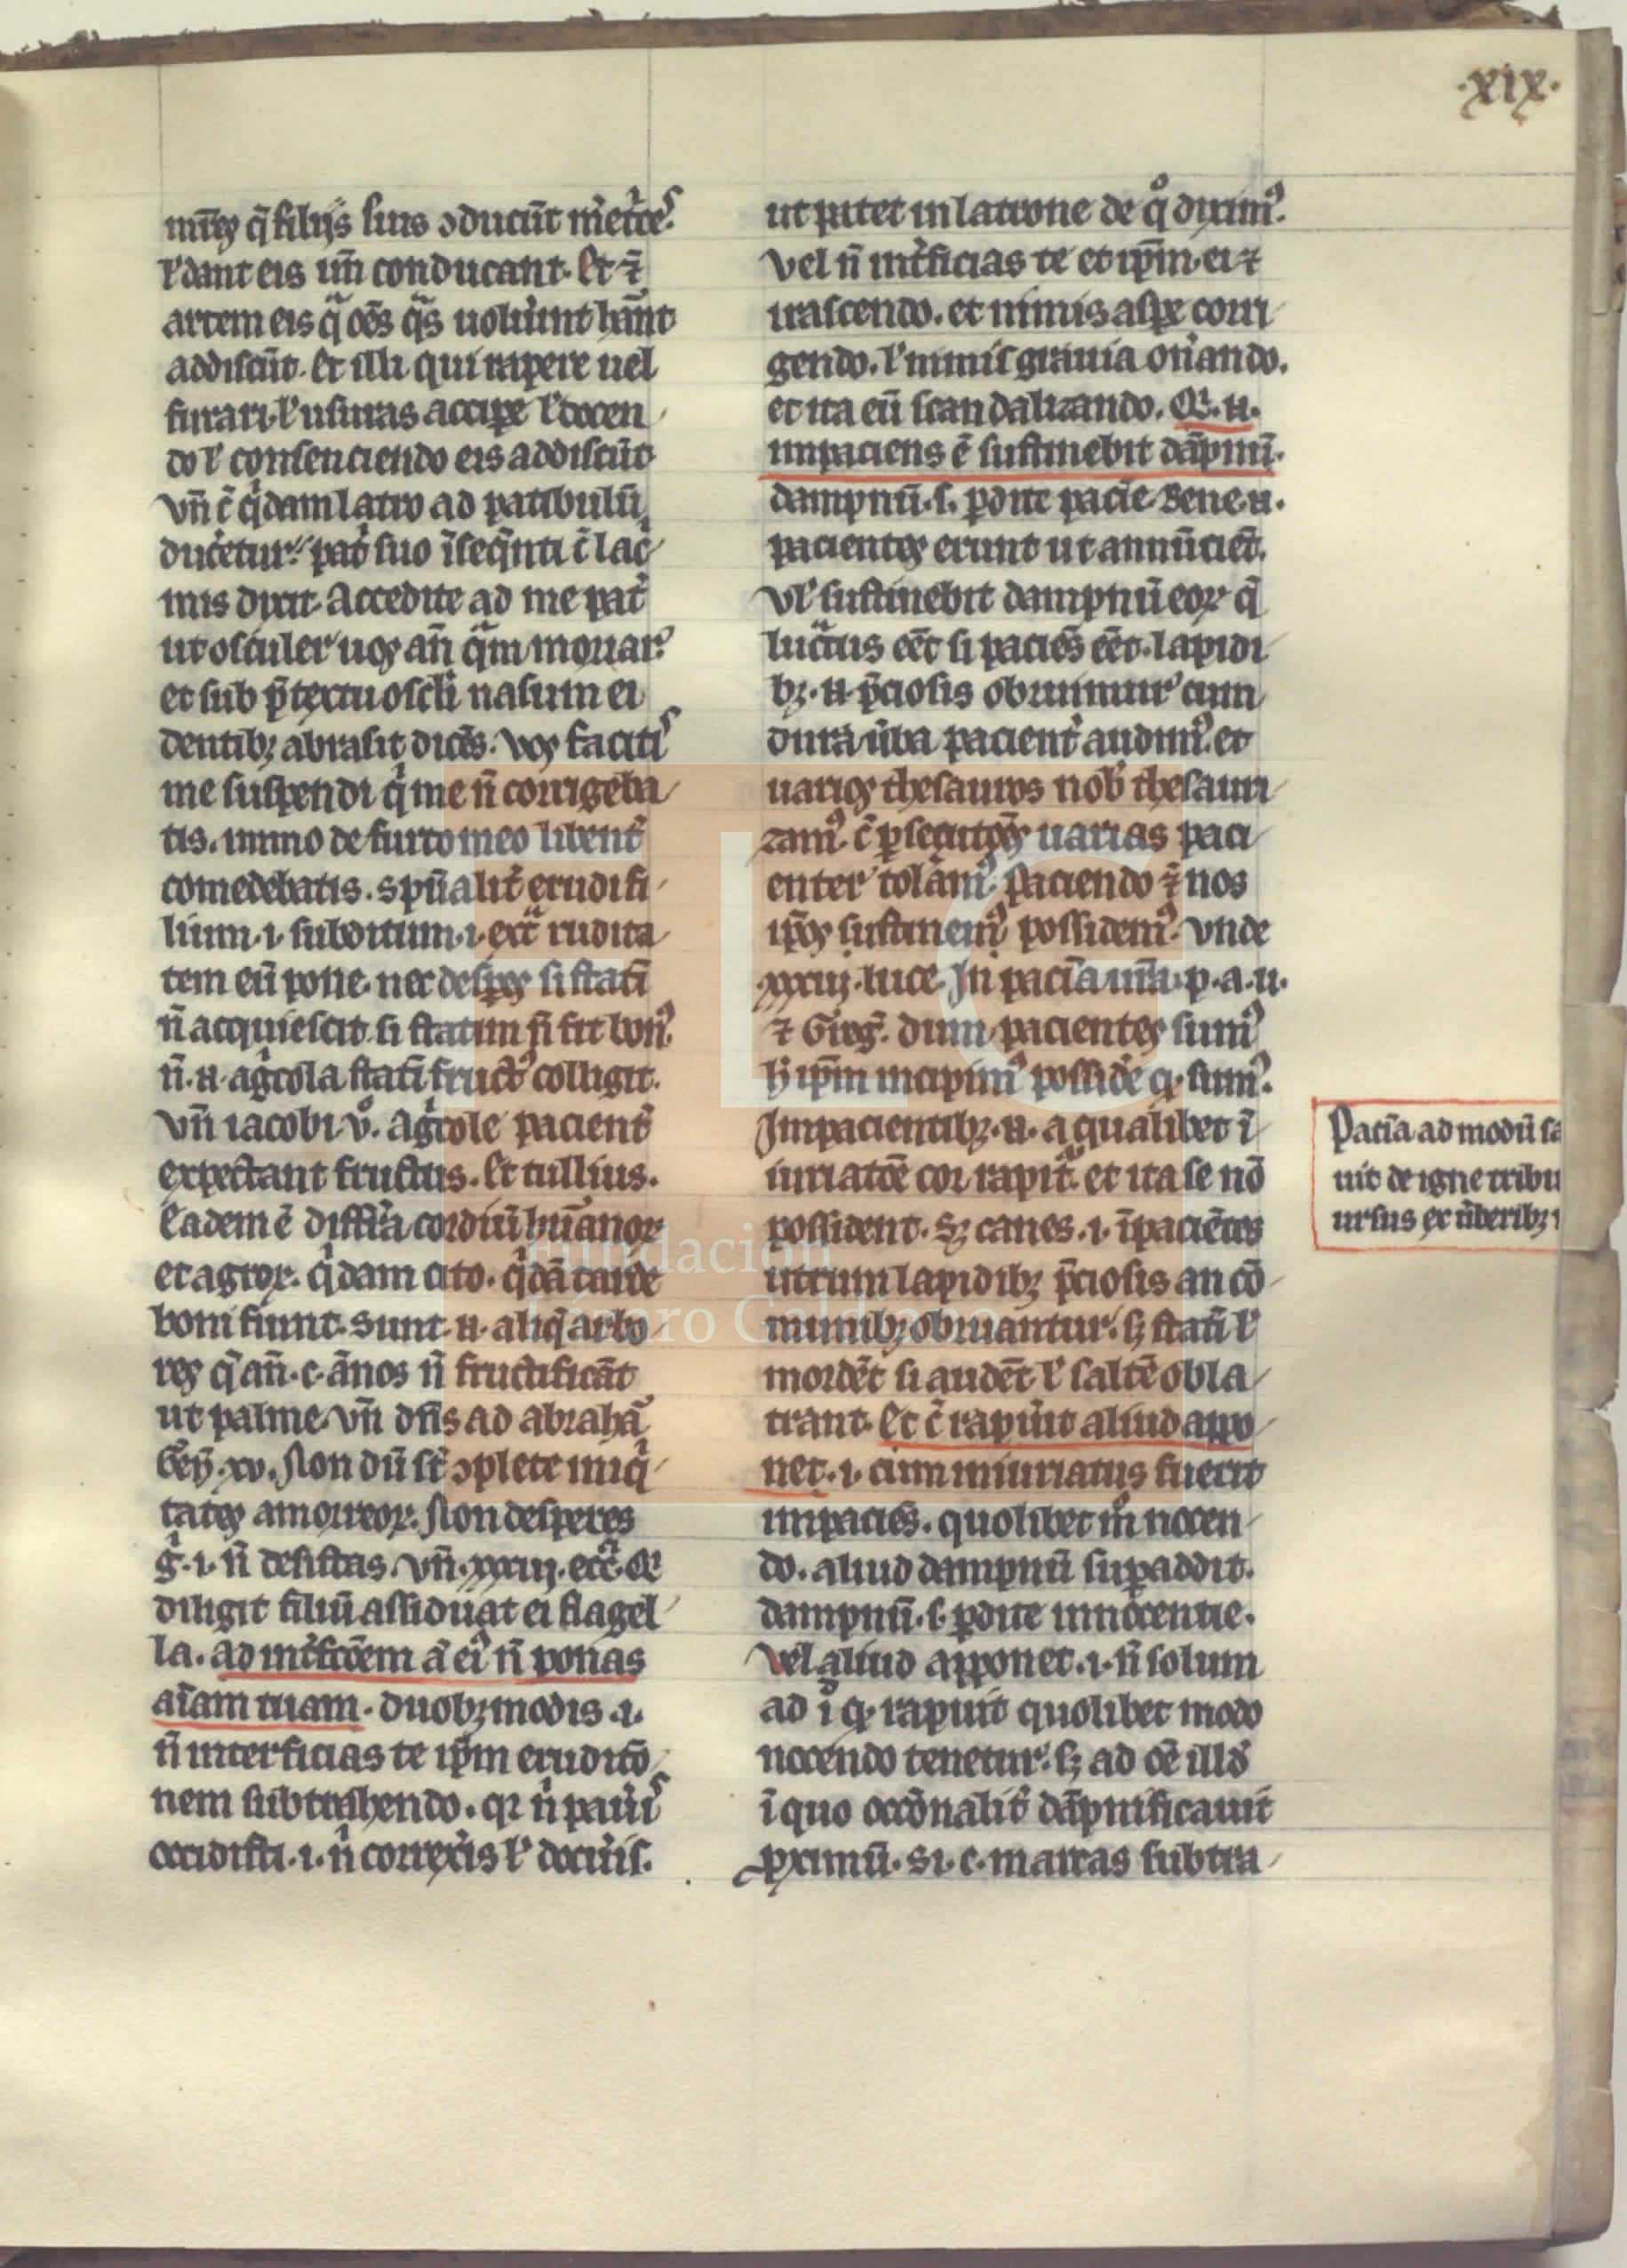 .xix.
mr̄es q̄ filijs suis ɔducūt m̄etrices
l' dant eis un̄ conducant. Et ī
artem eis q̄ om̄s q̄s uoluerint hn̄t
addiscūt. Et illi qui rapere uel
furari. l' usuras accipe l' docen
do l' consenciendo eis addiscūt
vn̄ c̄ q̇dam latro ad patibulū
duceretur pat' suo īseq̄nti c̄ lac'
mis dixit. Accedite ad me pat'
ut osculer uos an̄ q̄m moriar.
et sub p̄textu osc̄li nasum ei
dentibꝫ abrasit dicēs. vos facitis
me suspendi q̇ me n̄ corrigeba
tis. immo de furto meo libent'
comedebatis. Spūalit' erudi fi
lium .i. subditum .i. ex̄ rudita
tem eū pone. nec despes si statī
n̄ acquiescit. si statim n̄ fit bonꝰ.
n̄ .n. agͥcola statī fructꝰ colligit.
vn̄ iacobi v̊. agͥcole pacient'
expectant fructus. Et tullius.
Eadem ē diffr̄ia cordiū hūanoꝝ
et agroꝝ. q̇dam cito. q̇dā tarde
boni fiunt. Sunt .n. aliq̄ arbo
res q̄ an̄ .c. ānos n̄ fructificāt
ut palme. vn̄ dn̄s ad abrahā
Gen̄. xv. Non dū st̄ ɔplete iniq̇
tates amorreoꝝ. Non desperes
gͦ .i. n̄ desistas. vn̄ .xxxiij. ecc̄. Qͥ
diligit filiū assiduat ei flagel
la. ad int'fcōem aū eiꝰ n̄ ponas
aīam tuam. duobꝫ modis .i.
n̄ interficias te ip̄m erudito
nem subtrahendo. qꝛ n̄ pauis
occidisti .i. n̄ correxis l' docuis.
ut patet in latrone de q̊ diximꝰ.
Vel n̄ int'ficias te et ip̄m. ei ī
irascendo. et nimis aspe corri
gendo. l' nimis grauia on'ando.
et ita eū scandalizando. Qͥ .n.
inpaciens ē sustinebit dāpnū.
dampnū .s. pdite pacie. Bene .n.
pacientes erunt ut annūciēt.
vl' sustinebit dampnū eoꝝ q̄
lucratus eēt si paciēs eēt. lapidi
bꝫ .n. p̄ciosis obruimur cum
dura ūba pacient' audimꝰ. et
uarios thesauros nob' thesauri
zamꝰ. c̄ psecutōes uarias paci
enter tolamꝰ. Paciendo ī nos
ip̄os sustinemꝰ possidemꝰ. vnde
xxiij. luce. In pacīa ur̄a p. a. u.
ī Greg̃. dum pacientes sumꝰ
h' ip̄m incipimꝰ possidē q. sumꝰ.
Impacientibꝫ .n. a qualibet ī
iuriatōe cor rapit. et ita se nō
possident. Sꝫ canes .i. īpaciētes
utrum lapidibꝫ p̄ciosis an cō
munibꝫ obruantur. sꝫ statī l'
mordēt si audēt l' saltē obla
trant. Et c̄ rapūit aliud appo
net. i. cum iniuriatus fuerit
impaciēs. quolibet m̊ nocen
do. aliud dampnū supaddit.
dampnū .s. pdite innocentie.
Vel aliud apponet .i. n̄ solum
ad ī q. rapuit quolibet modo
nocendo tenetur. sꝫ ad oē illd'
ī quo occōnalit' dāpnificauit
pximū. Si .c. marcas subtra
Pacīa ad modū sa
uit de igne tribu
ursus ex ūberibꝫ